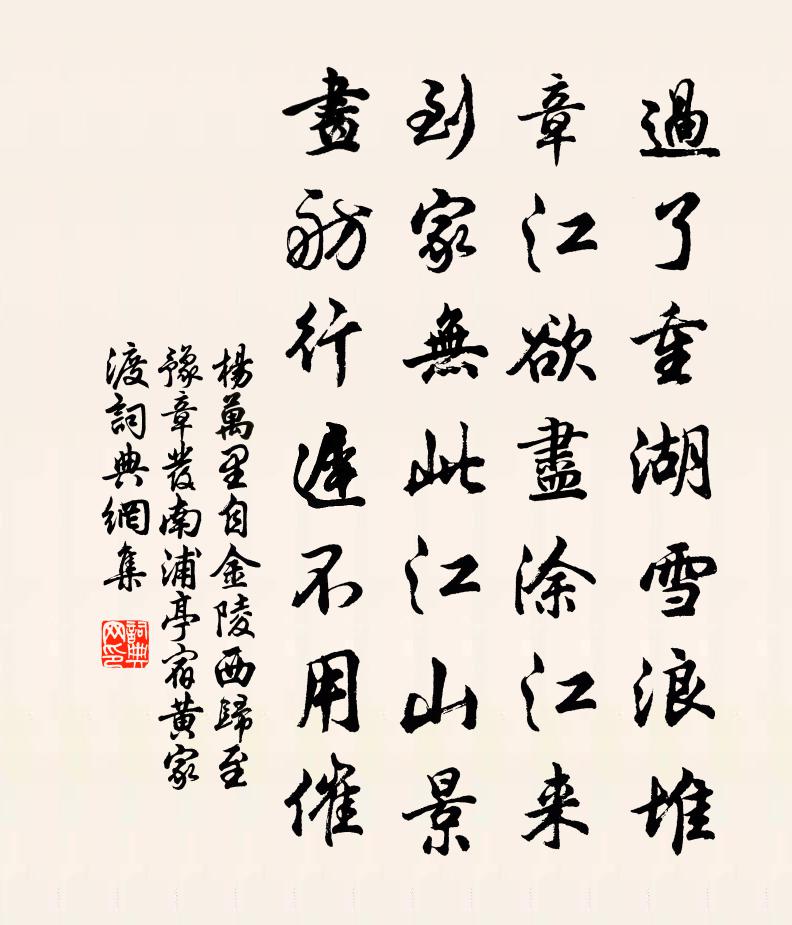 過了重湖雪浪堆
章江欲盡涂江来
到家無此江山景
畫舫行遅不用催
楊萬里自金陵西歸至
豫章發南浦亭宿黄家
渡詞典網集
詞典
网印